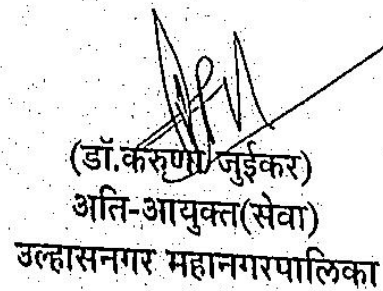 (डॉ.करुणा जुईकर)
अति-आयुक्त(सेवा)
उल्हासनगर महानगरपालिका